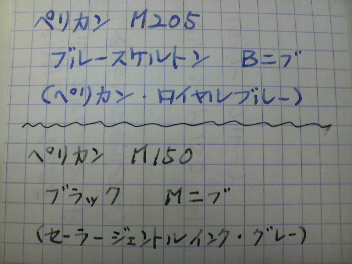 ペリカン M205
ブルースケルトン Bニブ
(ペリカン・ロイヤルブルー)
ペリカン M150
ブラック Mニブ
(セーラージェントルインク・グレー)